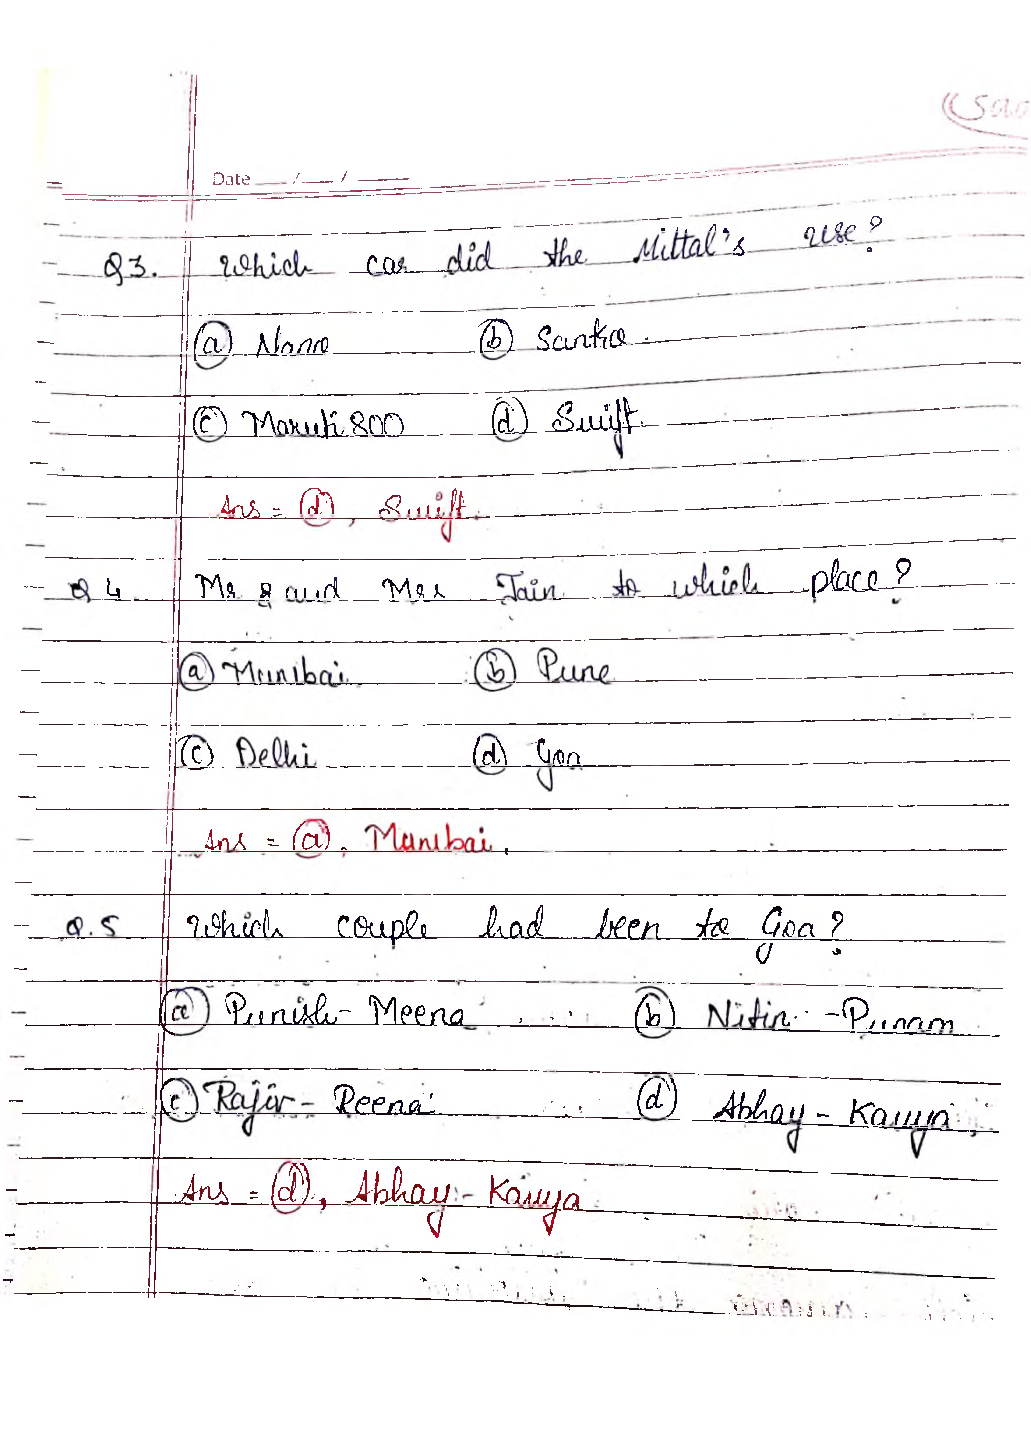 Date __/__/____
Q3. Which car did the Mittal's use?
(a) Nano (b) Santro.
(c) Maruti 800 (d) Swift.
Ans = (d), Swift.
Q4 Mr & and Mrs Jain to which place?
(a) Mumbai (b) Pune
(c) Delhi (d) Goa
Ans = (a), Mumbai.
Q.5 Which couple had been to Goa?
(a) Punish - Meena (b) Nitin - Punam
(c) Rajiv - Reena (d) Abhay - Kavya,
Ans = (d), Abhay - Kavya